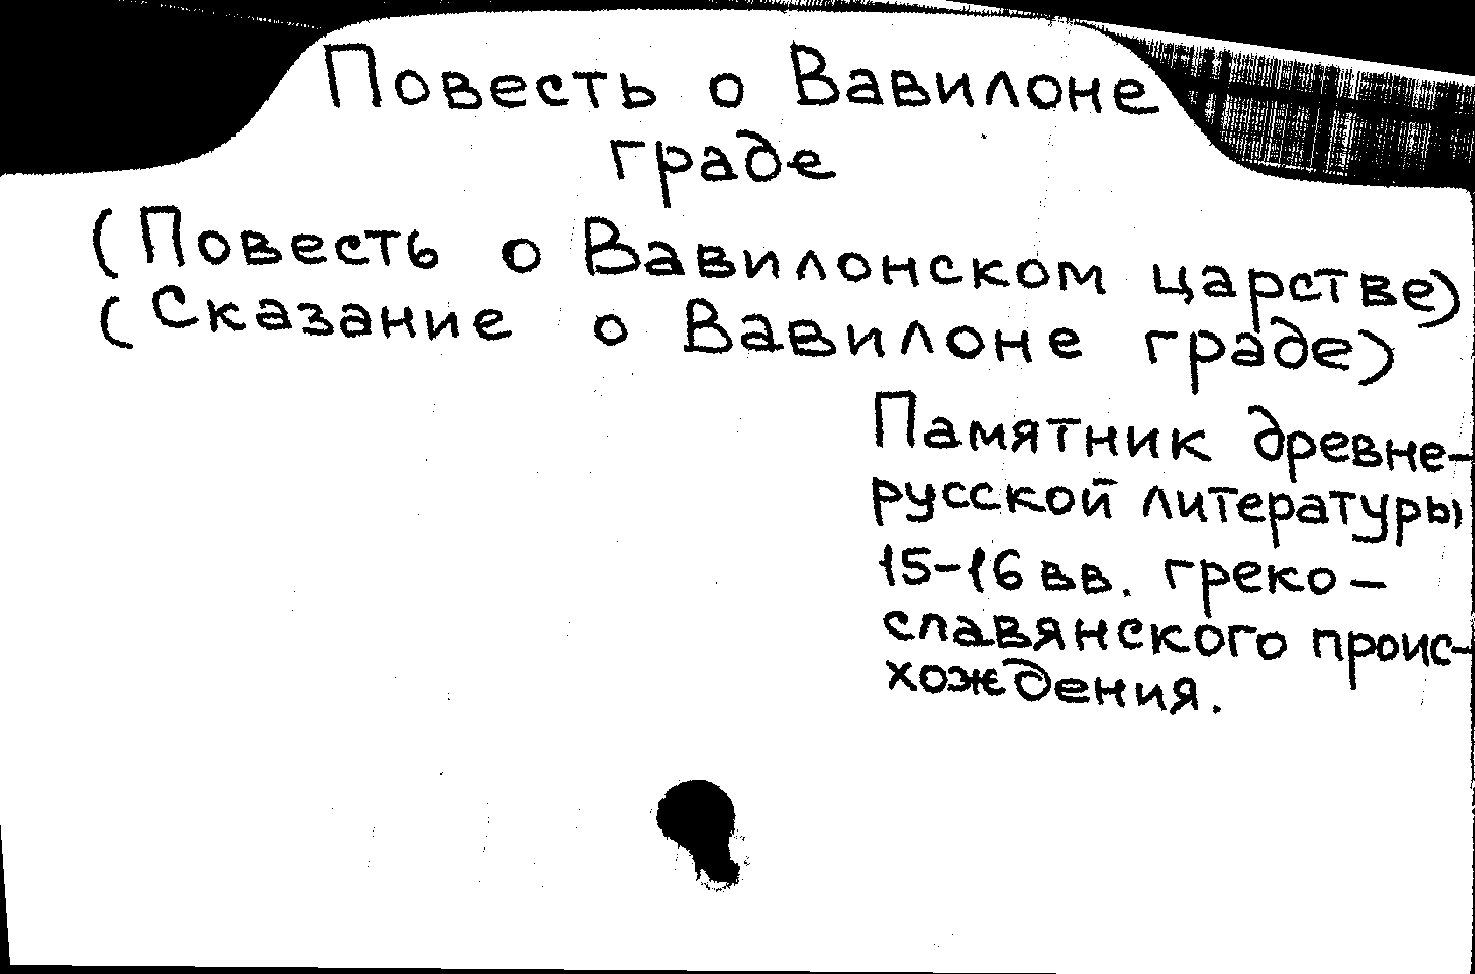 Повесть о Вавилоне
граде
(Повесть о Вавилонском царстве)
(Сказание о Вавилоне граде)
Памятник древне-
русской литературы
15-16 вв. греко-
славянского проис-
хождения.